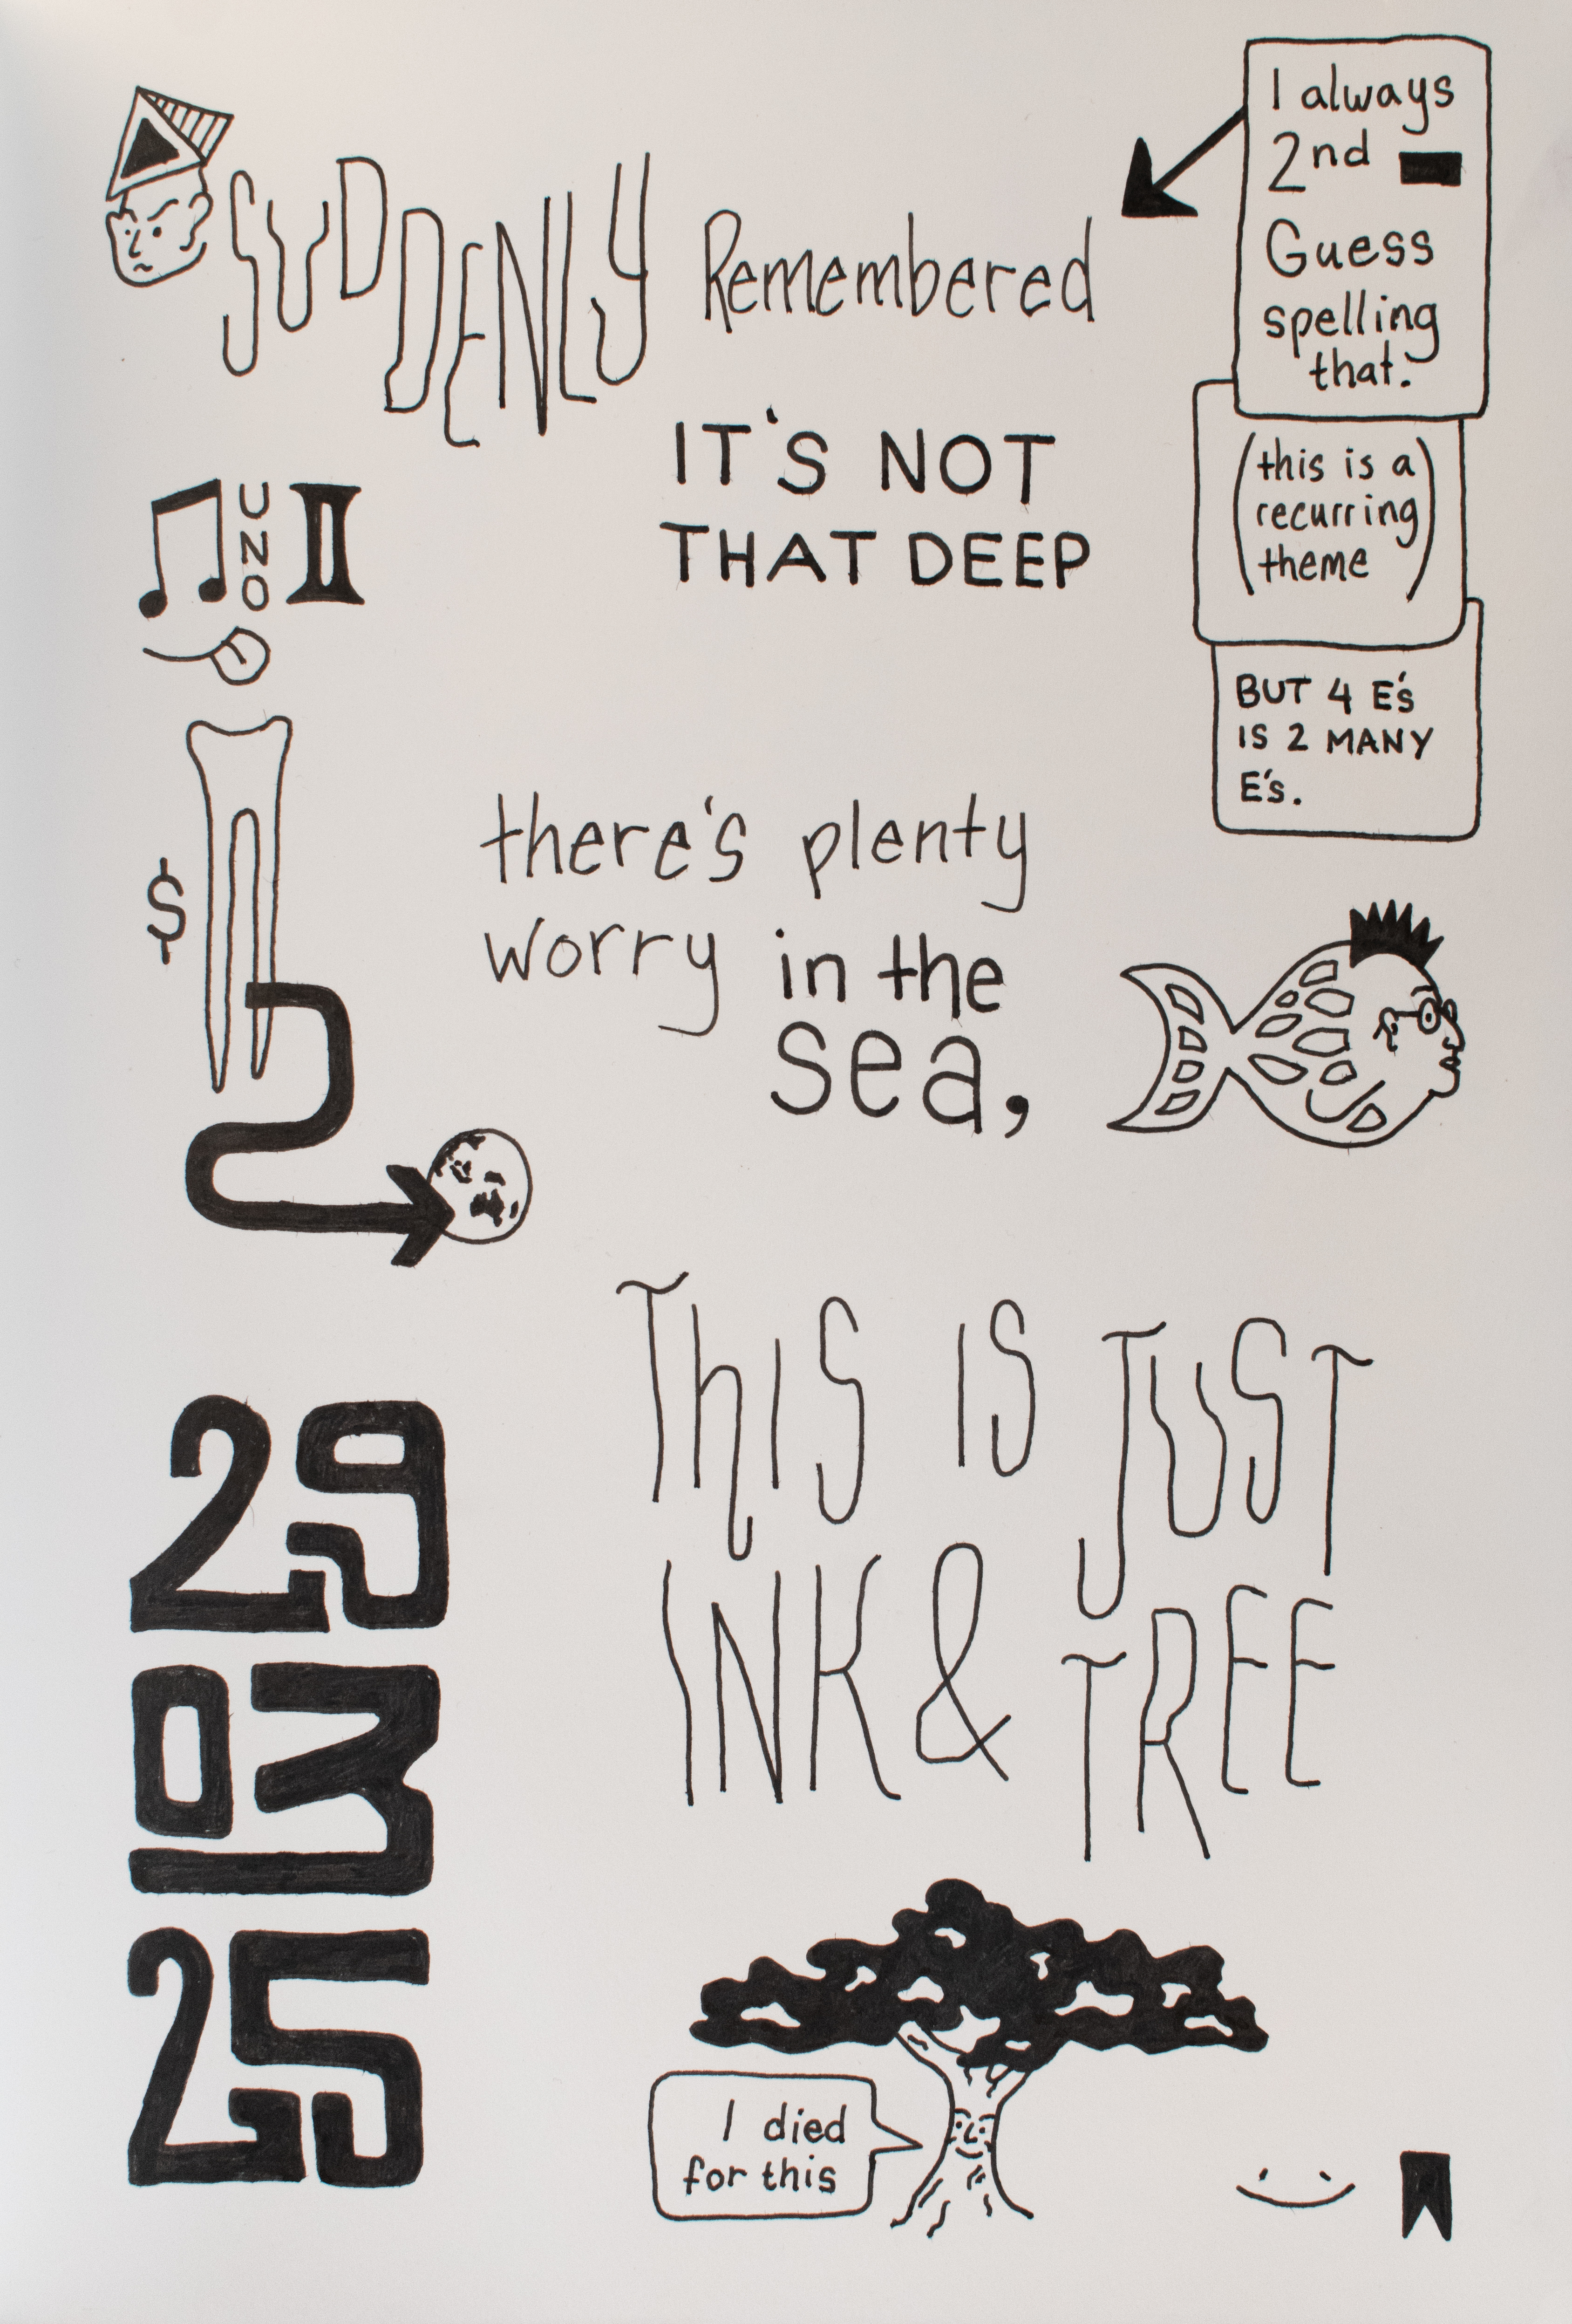 SUDDENLY Remembered
I always
2nd
Guess
spelling
that.
IT'S NOT
THAT DEEP
(this is a
recurring
theme)
BUT 4 E's
IS 2 MANY
E's.
UNO II
$
there's plenty
worry in the
sea,
THIS IS JUST
INK & TREE
29
03
25
I died
for this